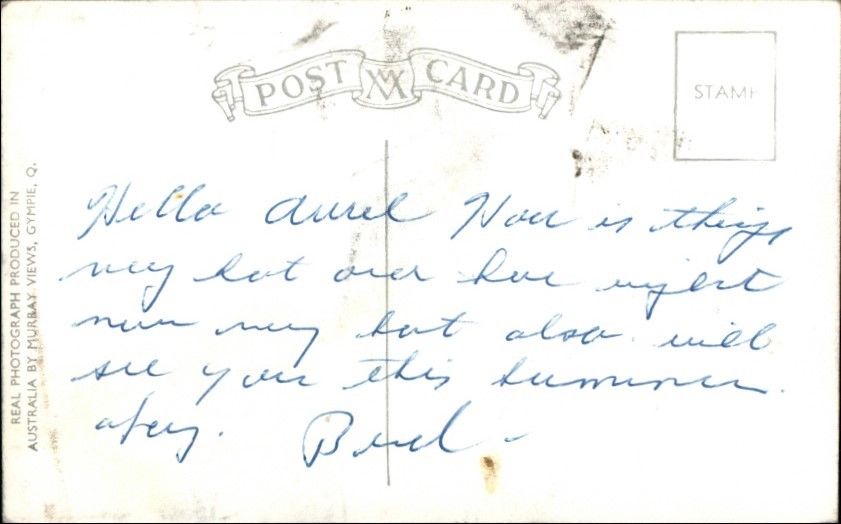 POST CARD
STAMP
REAL PHOTOGRAPH PRODUCED IN
AUSTRALIA BY MURRAY VIEWS, GYMPIE, Q.
Hello Aurel How is things
very hot over here right
now very hot also will
see you this summer.